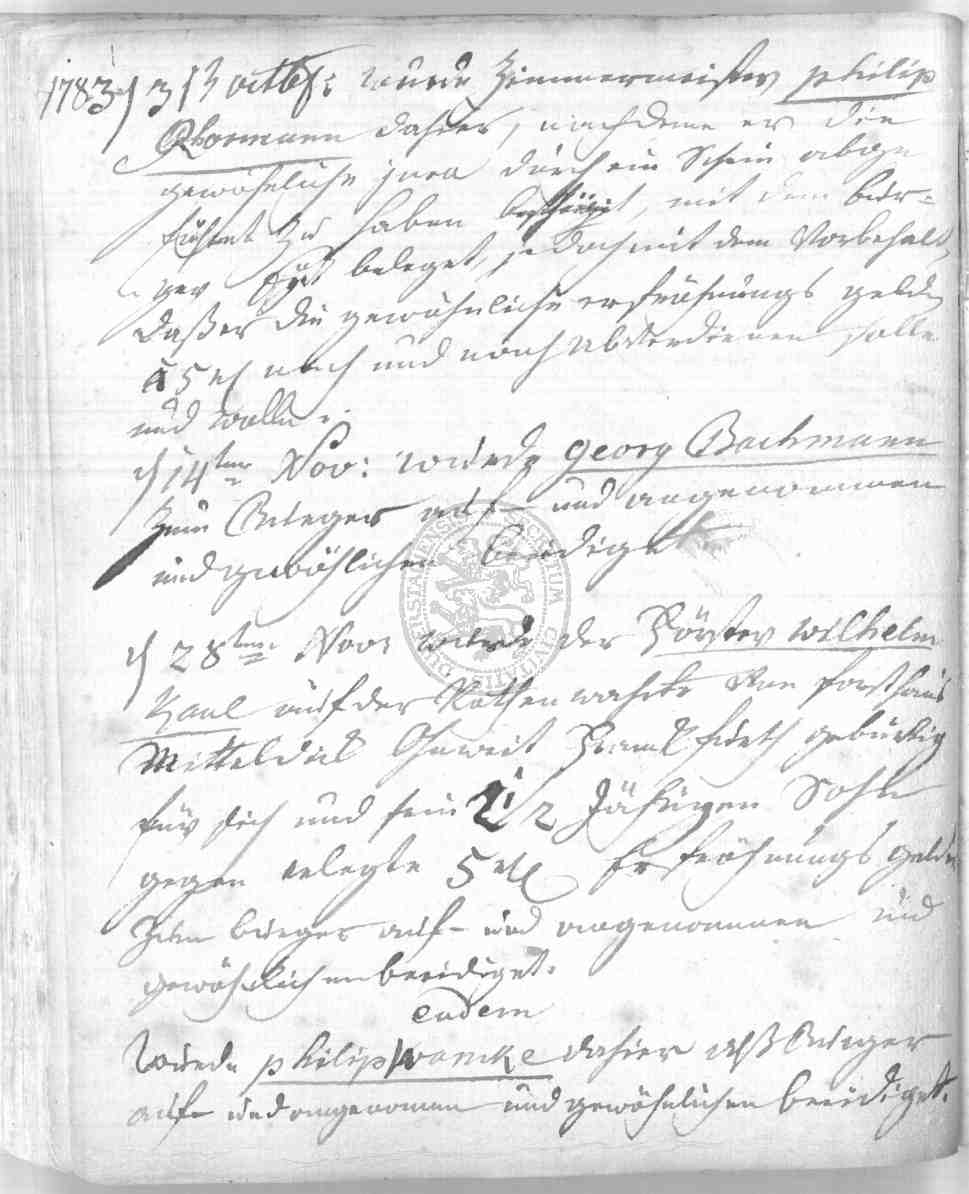 1783 d 13 octbr: wurde Zimmermeister philip
Rhormann dahier, nachdeme er die
gewöhnliche jura durch ein Schein abge
führet zu haben mit dem bür-
ger Eyd beleget, jedoch mit dem Vorbehalt,
daßer die gewöhnliche erfröhnungs gelder
a 5 rth nach und nach abverdienen solle
und wolle.
d 14ten Nov: wurde georg Bachmann
zum Bürger auf- und angenommen
und gewöhlichen beeidiget
d 28ten Nov: wurde der Förster wilhelm
Kaul auf der Rothen wahrte Von forsthaus
Mitteldick Ohnweit Franckfurth gebürtig
für sich und sein 2 1/2 Jährigen Sohn
gegen erlegte 5 rth Erfröhnungs gelder
Zum bürger auf- und angenommen und
gewöhnlichen beeidiget.
eadem
Wurde philip wancke dahier alß Bürger
auf- und angenomen und gewöhnlichen beeidiget.
DUDERSTADIENSIS CIVITATIS